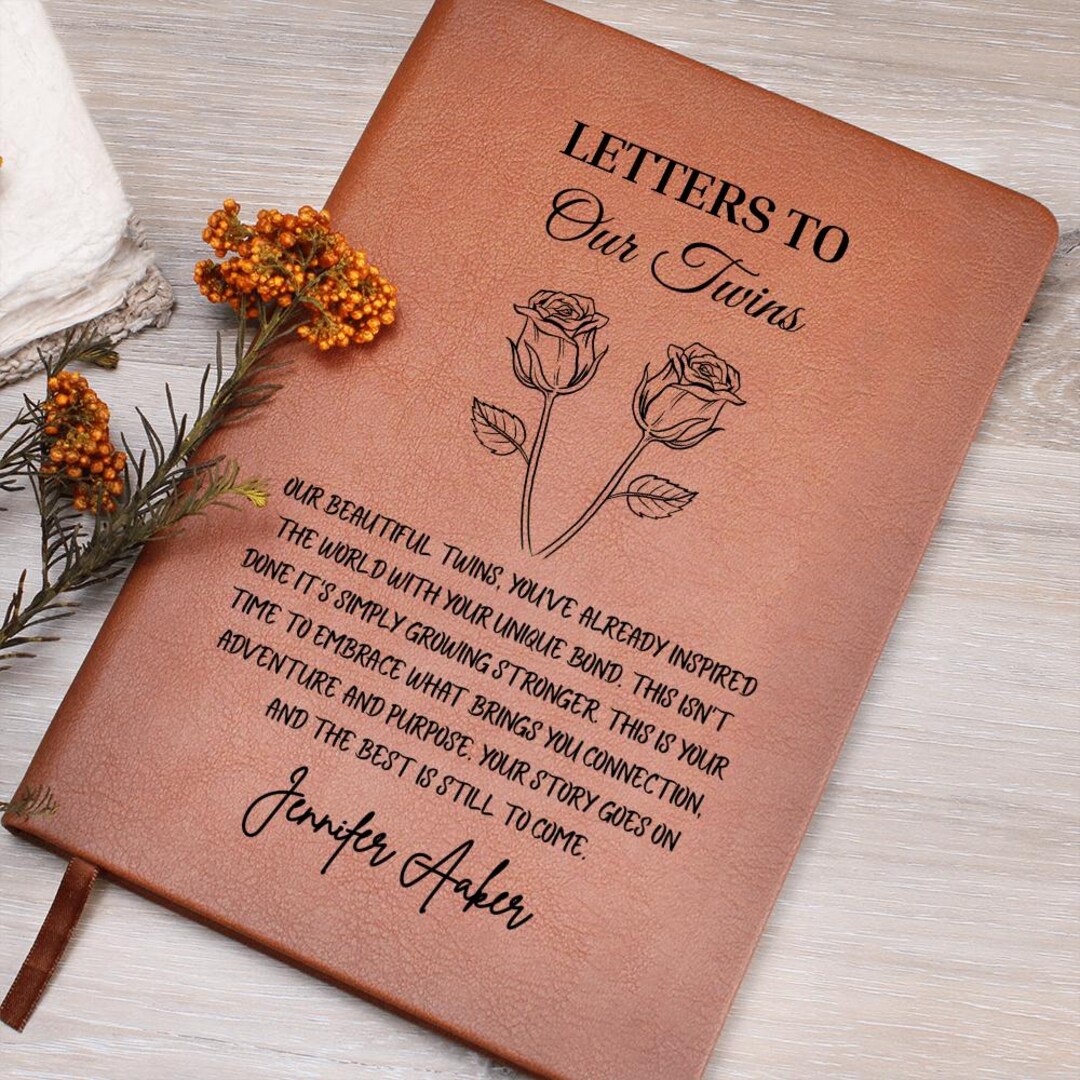 LETTERS TO
Our Twins
OUR BEAUTIFUL TWINS, YOU'VE ALREADY INSPIRED
THE WORLD WITH YOUR UNIQUE BOND. THIS ISN'T
DONE IT'S SIMPLY GROWING STRONGER. THIS IS YOUR
TIME TO EMBRACE WHAT BRINGS YOU CONNECTION,
ADVENTURE AND PURPOSE. YOUR STORY GOES ON
AND THE BEST IS STILL TO COME.
Jennifer Aaker